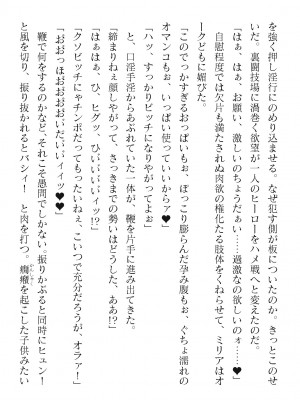 を強く押し淫行にのめり込ませる。なぜ犯す側が板についたのか。きっとこのせ
いだ。裏闘技場に渦巻く欲望が一人のヒーローをハメ戦へと変えたのだ。
「はぁ、はぁ、お願い、激しいのちょうだぁい……過激なの欲しいのぉ……♥」
自慰程度では欠片も満たされぬ肉欲の権化たる肢体をくねらせて、ミリアはオ
ークどもに媚びた。
「このでっかすぎるおっぱいもぉ、ぽっこり膨らんだ孕み腹もぉ、ぐちょ濡れの
オマンコもぉ、いっぱい使っていいからァ♥」
「ハッ、すっかりビッチになりやがってよぉ」
と、口淫手淫からあぶれていた一体が、鞭を片手に進み出てきた。
「締まりねぇ顔しやがって、さっきまでの勢いはどうした、ああ!?」
「はぁはぁ、ひ、ヒグッ、ひぃぃぃぃィッ!?」
「クソビッチにゃチンポだってもったいねぇ、こいつで充分だろうが、オラァ！」
「おおっほぉぉぉぉぉいだいぃイィッ♥♥」
鞭で何をするのかなど、それこそ愚問でしかない。振りかぶると同時にヒュン！
と風を切り、振り抜かれるとバシィ！　と肉を打つ。癇癪を起こした子供みたい